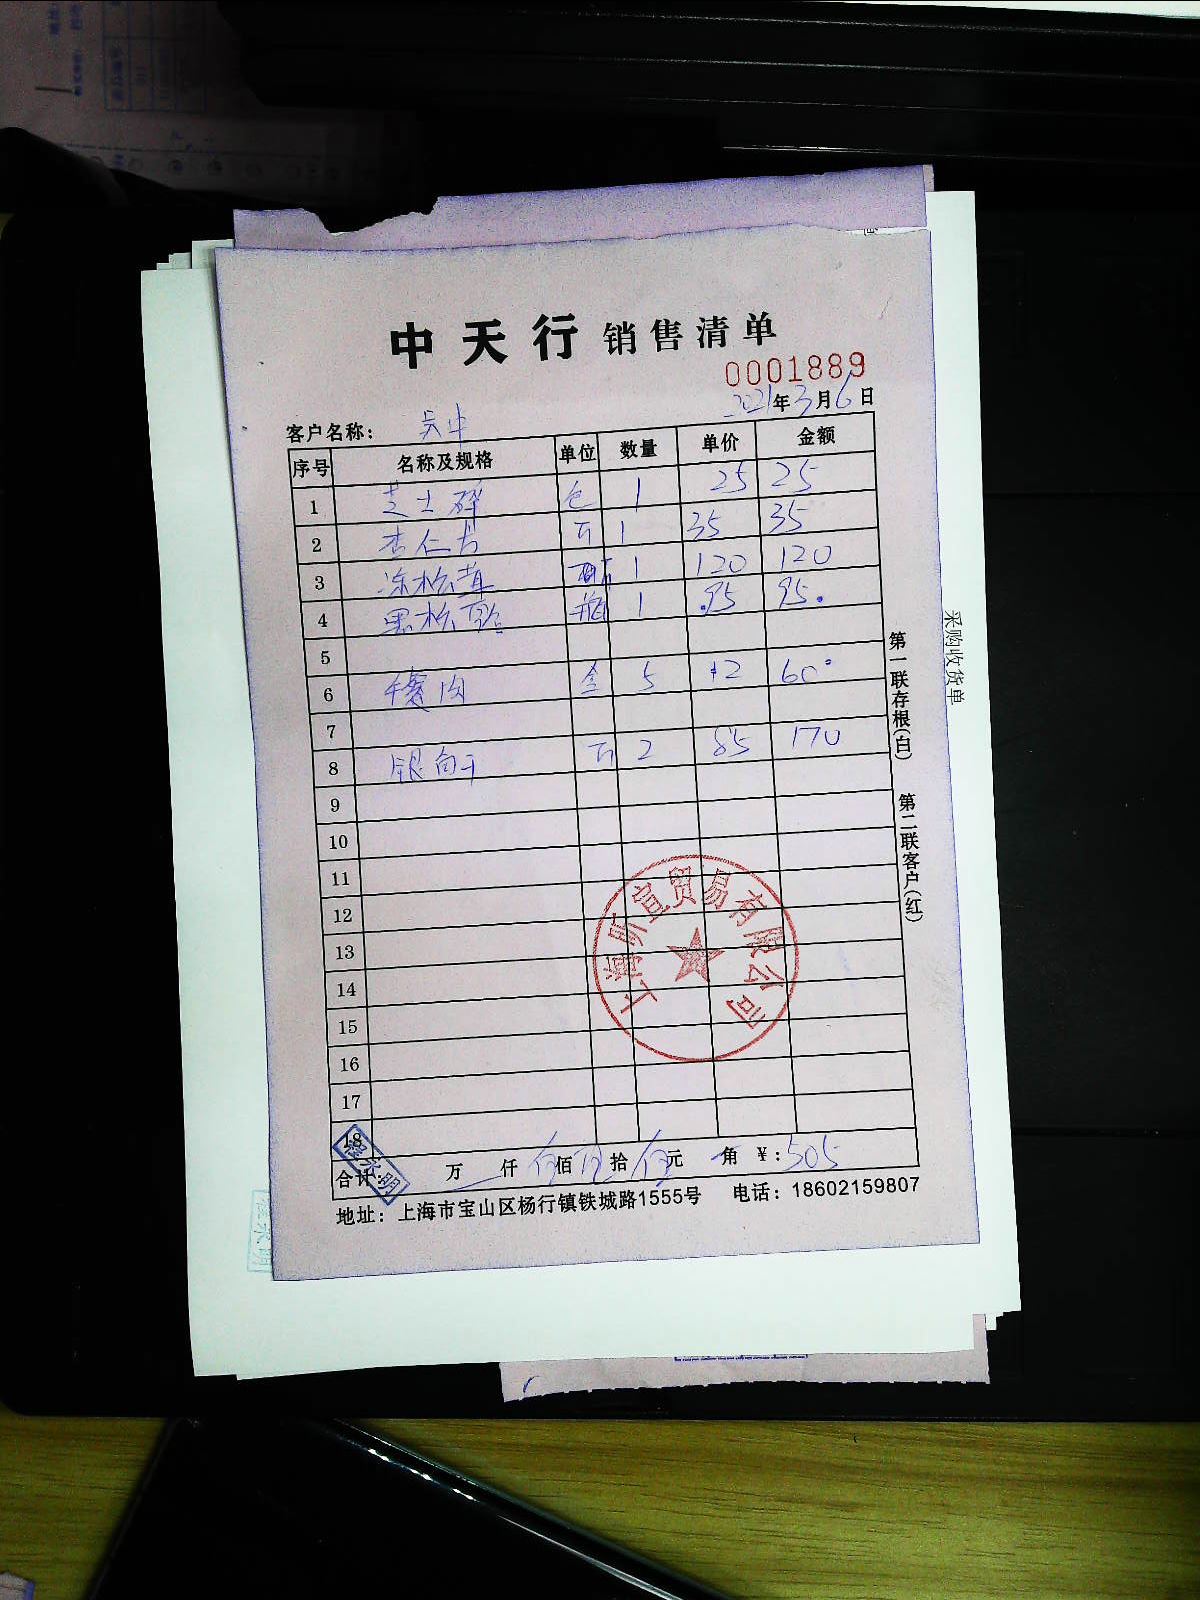 中天行 销售清单
0001889
2021年3月6日
客户名称: 吴中
序号 名称及规格 单位 数量 单价 金额
1 芝士碎 包 1 25 25
2 杏仁片 斤 1 35 35
3 冻松茸 1 120 120
4 黑松 瓶 1 95 95.
5
6 千 肉 盒 5 12 60
7
8 银 干 斤 2 85 170
9
10
11
12
13
14
15
16
17
18
合计: 万 仟 伍佰 拾 伍元 角 ¥: 505
地址: 上海市宝山区杨行镇铁城路1555号 电话: 18602159807
第一联存根(白) 第二联客户(红)
采购收货单
上海昕宣贸易有限公司
程永明